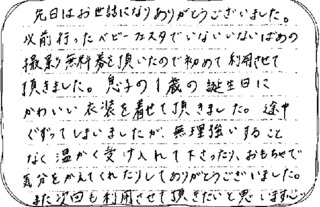 先日はお世話になりありがとうございました。
以前行ったベビーカスタでいないいないばあの
撮影無料券を頂いたので初めて利用させて
頂きました。息子の1歳の誕生日に
かわいい衣装を着せて頂きました。途中
ぐずってしまいましたが、無理強いすること
なく温かく受け入れて下さったり、おもちゃで
気分をかえてくれたりしてありがとうございました。
また次回も利用させて頂きたいと思います